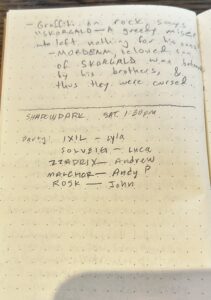 - Graffiti on rock says
"SKORGALD — A greedy miser
who left nothing for his
- MORDENM, beloved son
of SKORGALD was
by his brothers, &
thus they were cursed.
SHADOWDARK SAT. 1:30pm
Party: IXIL - Lyla
SOLVEIG - Luca
IZEDRIX - Andrew
MALCHOR - Andy P
ROSK — John